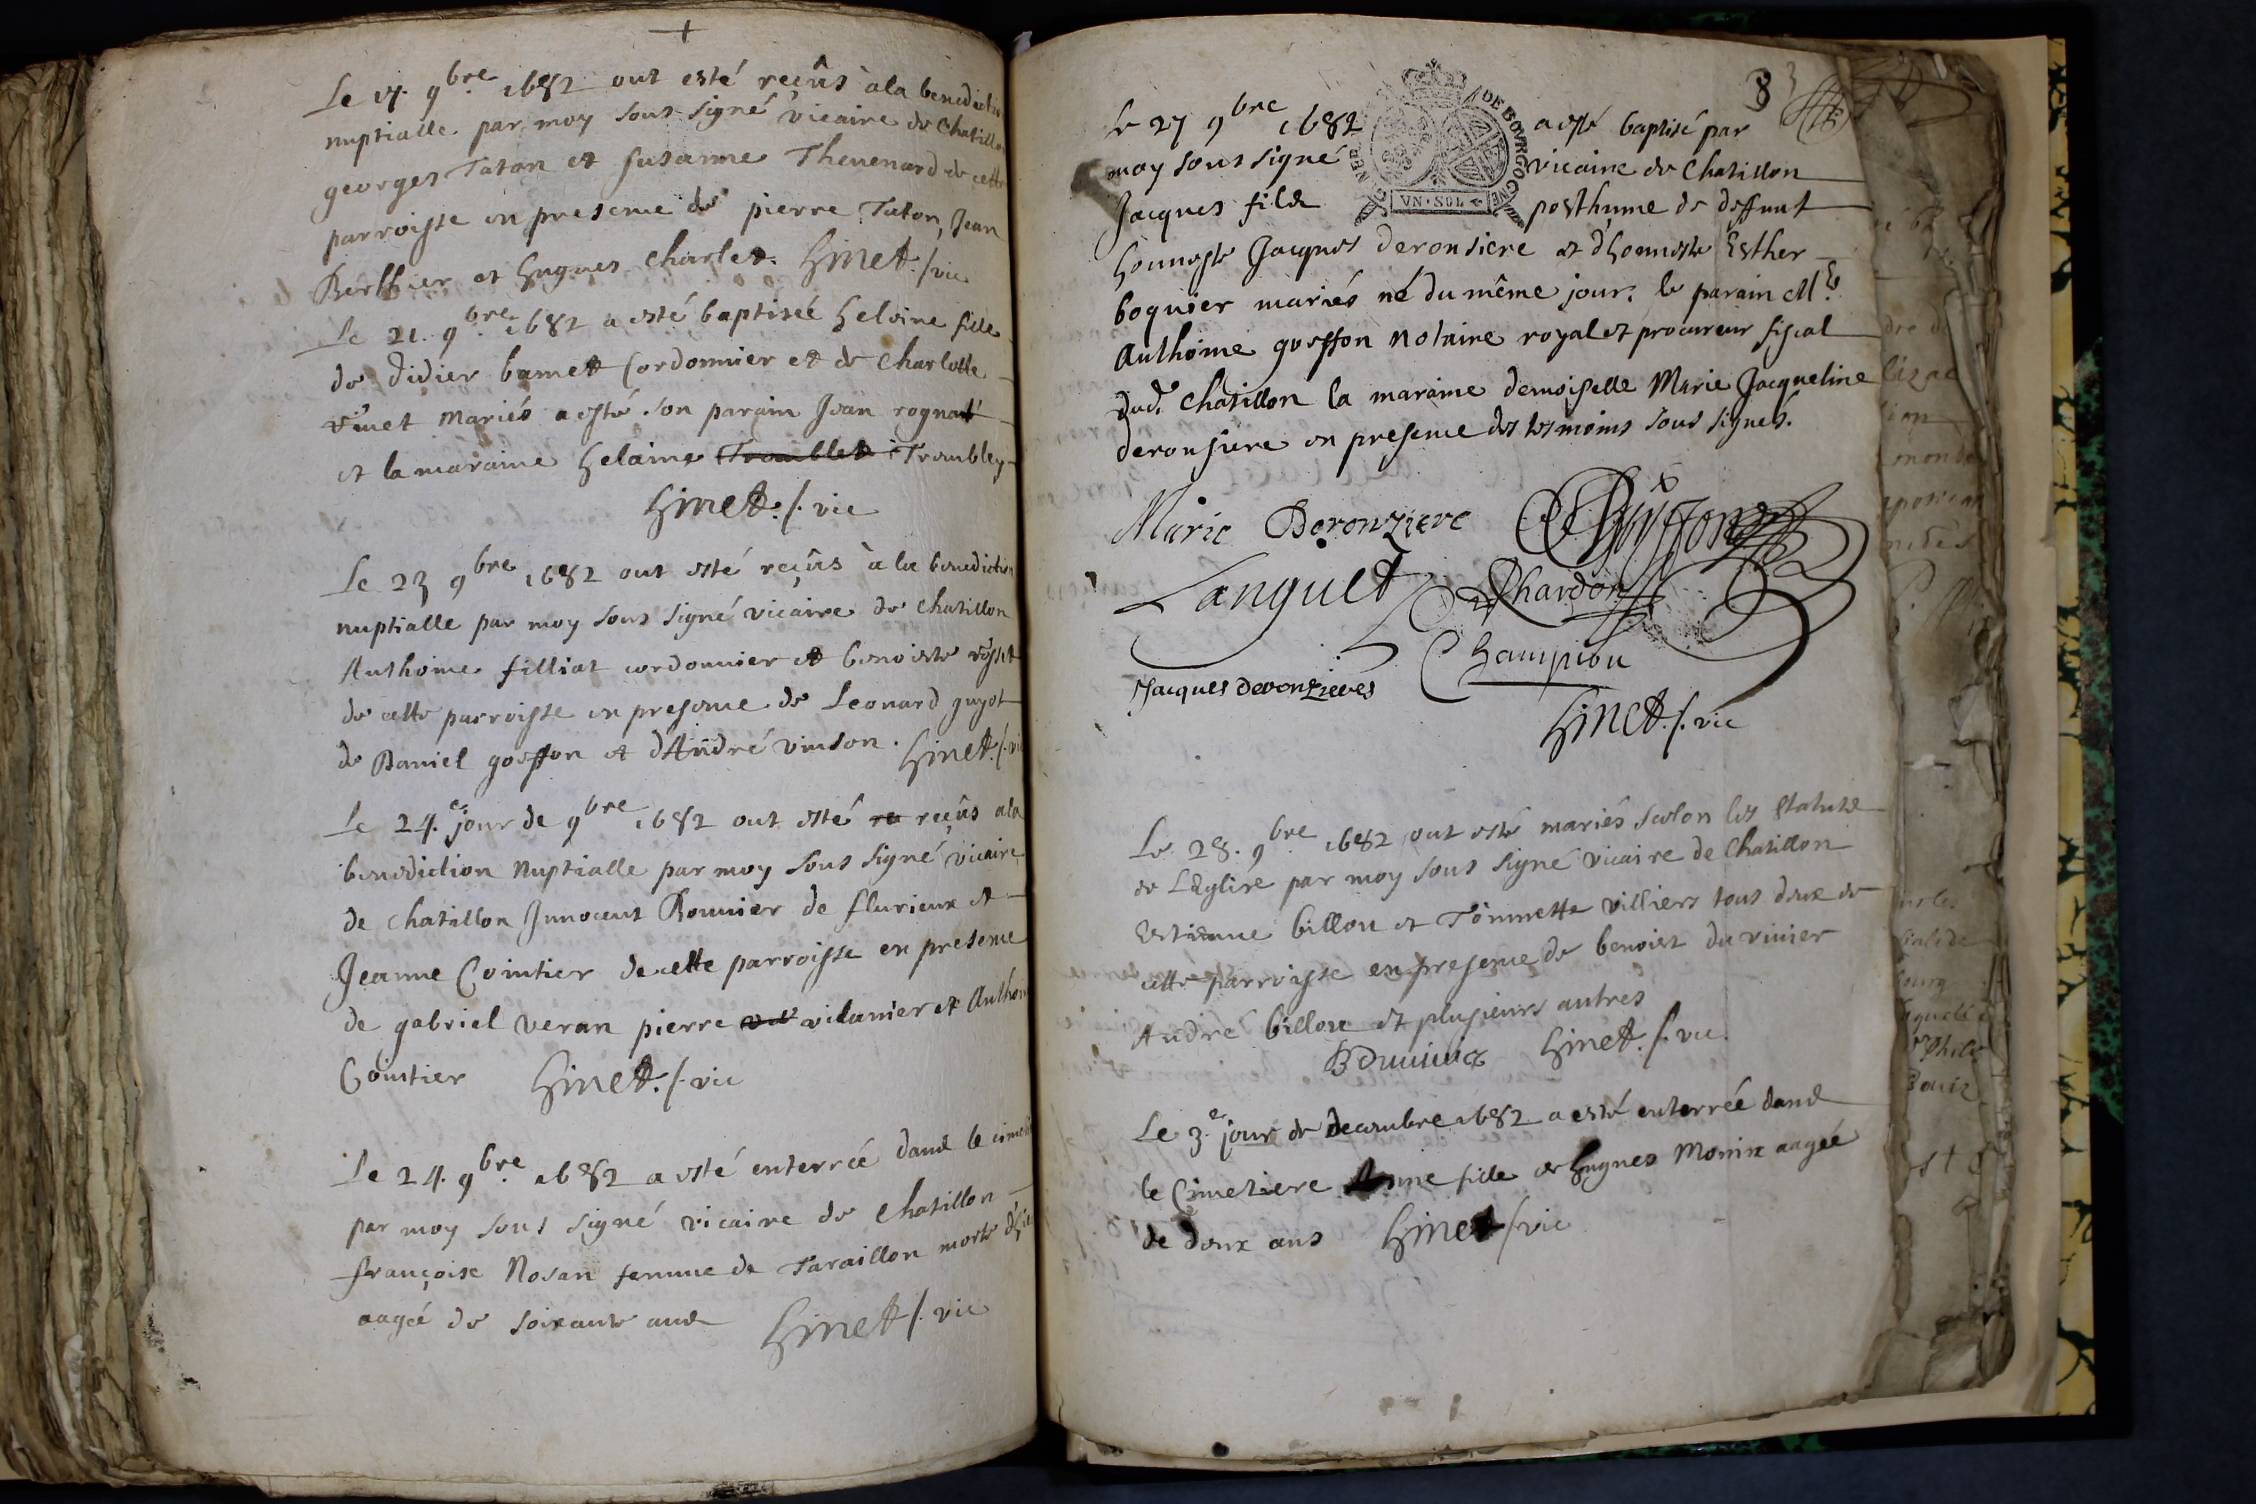 Le 17. 9bre. 1682 ont esté reçûs à la benediction
nuptialle par moy sous signé vicaire de Chatillon
georges Taton et susanne Thevenard de cette
parroisse en presence de pierre Taton, Jean
Berthier et hugues Charlet. hinet./vic
Le 21. 9bre. 1682 a esté baptisée heloine fille
de didier bamet Cordonnier et de Charlotte
vivet mariés a esté son parain Jean rognat
et la maraine helaine Trombley
hinet./. vic
Le 23 9bre 1682 ont esté reçûs à la benediction
nuptialle par moy sous signé vicaire de Chatillon
Anthoine filliat cordonnier et benoiste rosset
de cette parroisse en presence de Leonard guyot
de Daniel gosson et d'André vinson. hinet./. vic
Le 24.e jour de 9bre 1682 ont esté re reçûs a la
benediction Nuptialle par moy sous signé vicaire
de chatillon Innocent Bonnier de flurieux et
Jeanne Cointier de cette parroisse en presence
de gabriel veran pierre vilanier et Anthoine
Cointier hinet./. vic
Le 24. 9bre. 1682 a esté enterrée dans le
par moy sous signé vicaire de Chatillon
françoise Nosan femme de Taraillon morte
aagée de soixante ans hinet/. vic
8
Le 27 9bre 1682 a esté baptisé par
moy sous signé vicaire de Chatillon
Jacques fils posthume de deffunt
DE BOVRGOGNE
VN·SOL
honneste Jacques deronsiere et d'honneste Esther
boquier mariés né du même jour. le parain Me
Anthoine gosson Notaire royal et procureur fiscal
dud. Chatillon la maraine demoiselle Marie Jacqueline
deronsiere en presence des tesmoins sous signés.
Marie Deronziere Gosson
Languet Chardon
Champion
Jacques deronzieres
hinet./. vic
Le 28. 9bre. 1682 ont esté mariés selon les statuts
de L'Eglise par moy sous signé vicaire de Chatillon
Estienne billon et Toinnette villiers tous deux de
cette parroisse en presence de benoist du vivier
André billon et plusieurs autres
hinet./. vic
Le 3.e jour de decembre 1682 a esté enterrée dans
le Cimetiere Anne fille de hugues Monin aagée
de deux ans hinet/. vic